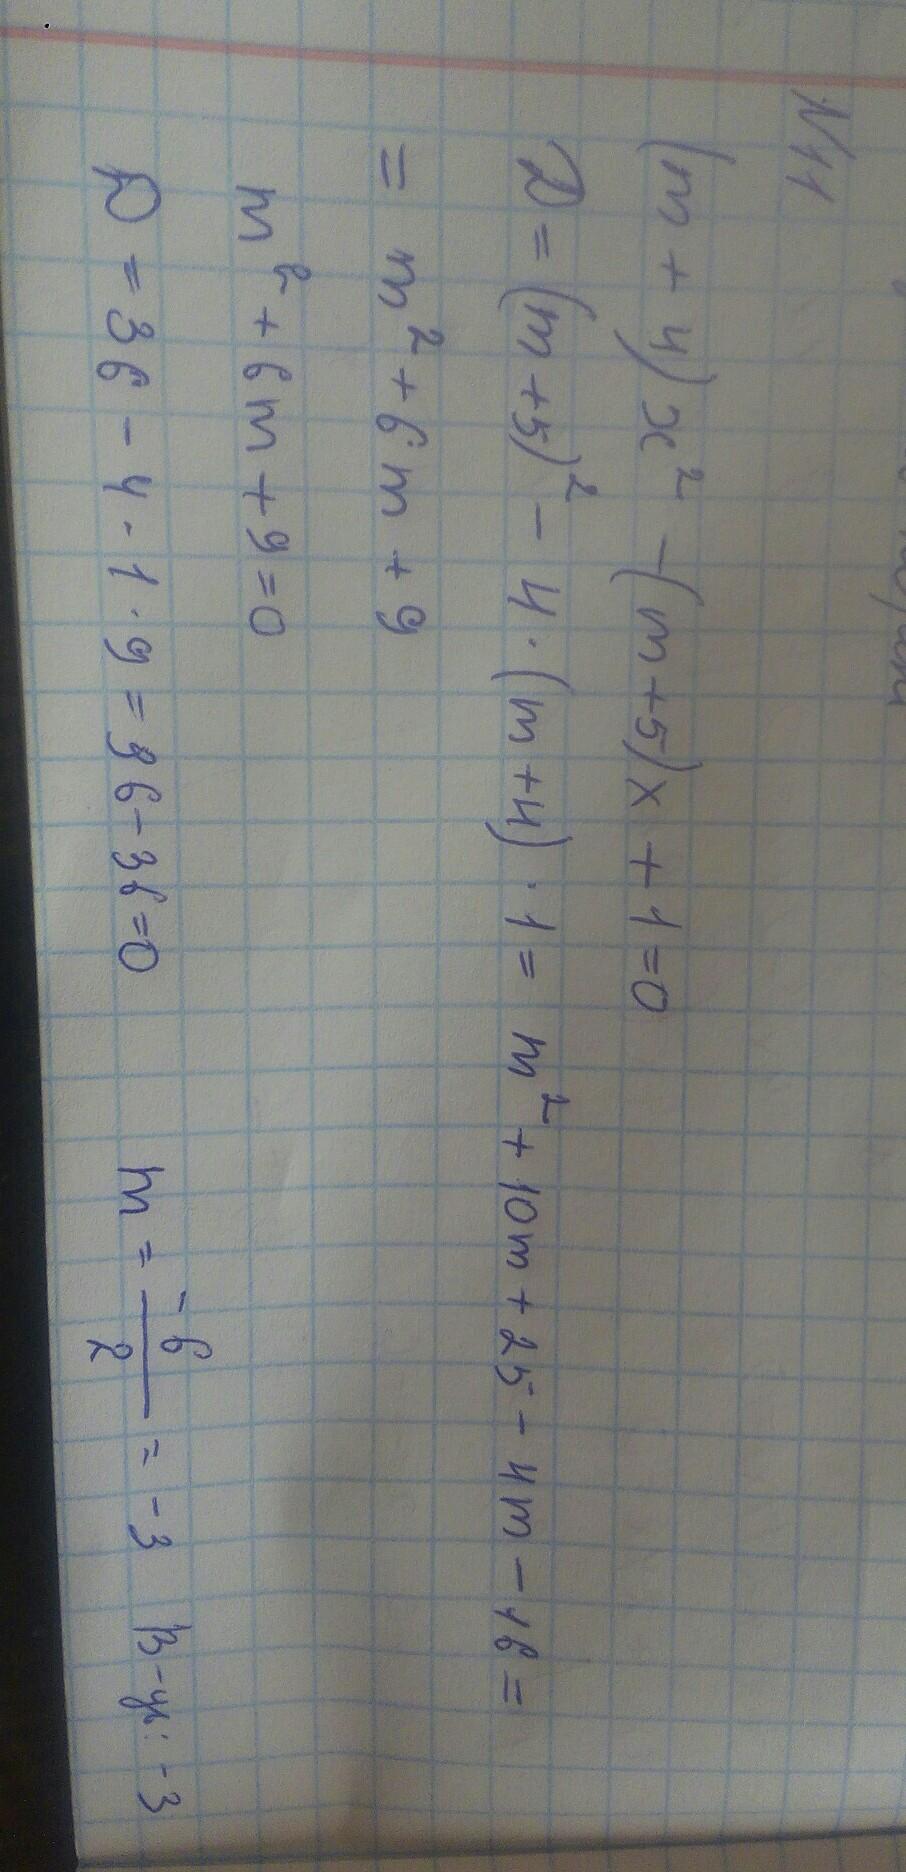 №11
(m + 4)x² - (m+5)x + 1 = 0
D = (m+5)² - 4·(m+4)·1 = m² + 10m + 25 - 4m - 16 =
= m² + 6m + 9
m² + 6m + 9 = 0
D = 36 - 4·1·9 = 36 - 36 = 0 m = -6/2 = -3 В-дь: -3